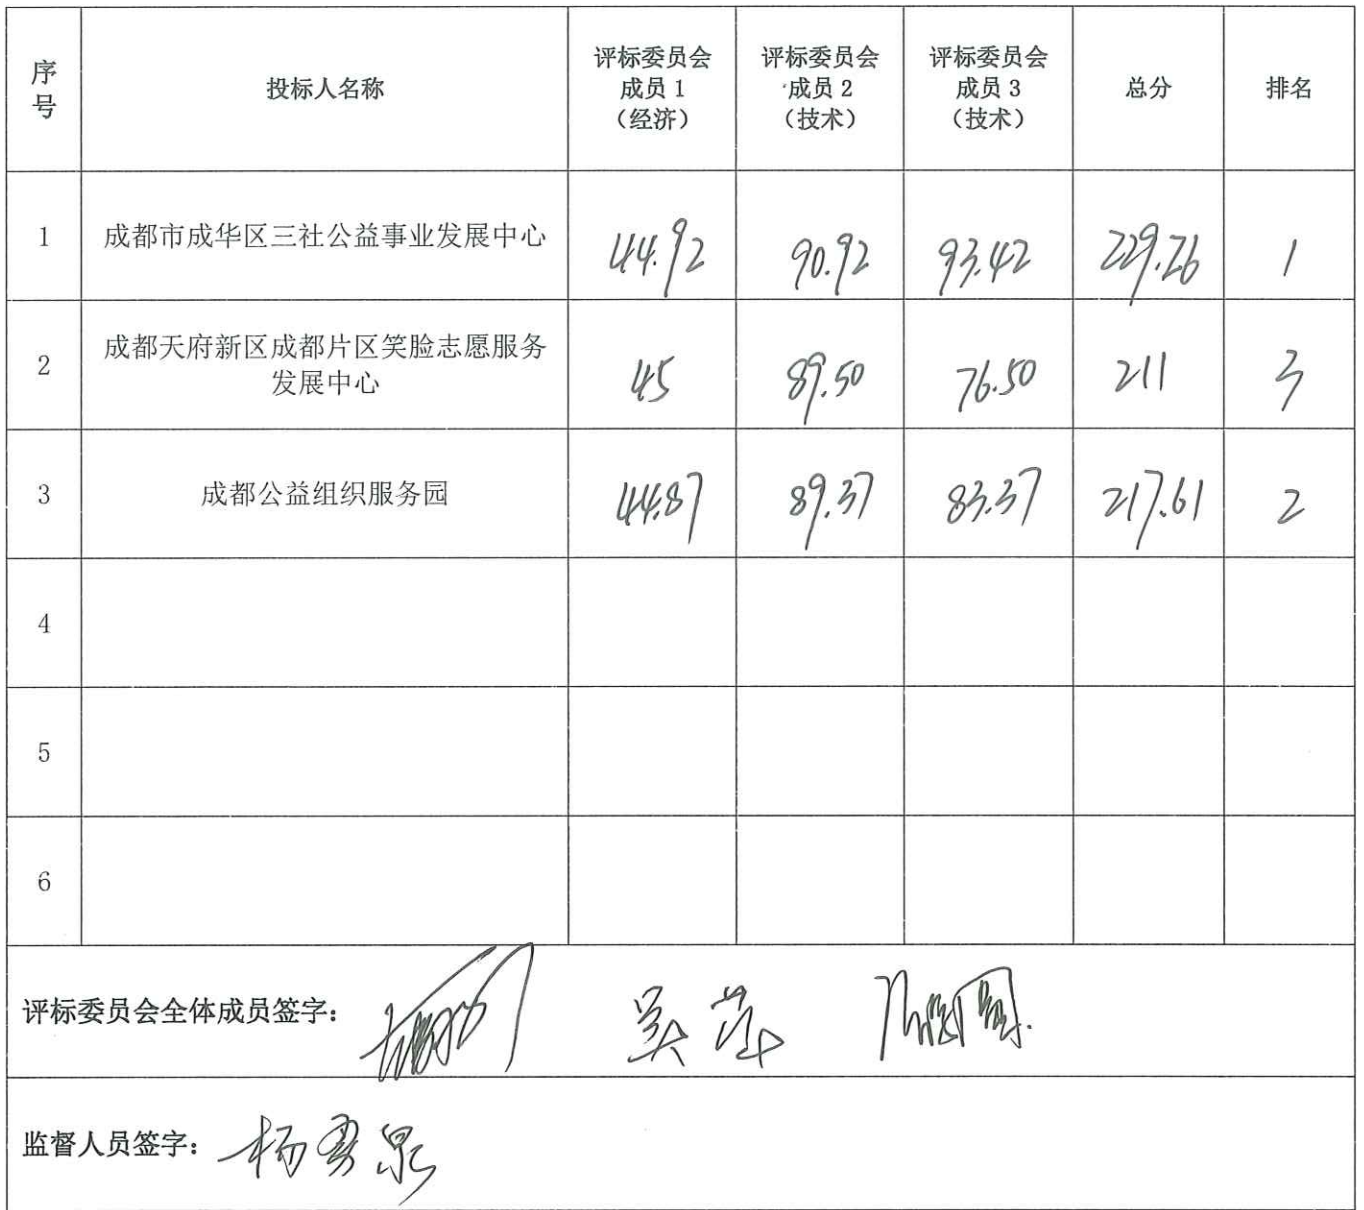 序号 投标人名称 评标委员会成员1（经济） 评标委员会成员2（技术） 评标委员会成员3（技术） 总分 排名
1 成都市成华区三社公益事业发展中心 44.92 90.92 93.42 229.26 1
2 成都天府新区成都片区笑脸志愿服务发展中心 45 89.50 76.50 211 3
3 成都公益组织服务园 44.87 89.37 83.37 217.61 2
4
5
6
评标委员会全体成员签字： 吴萍
监督人员签字： 杨秀泉